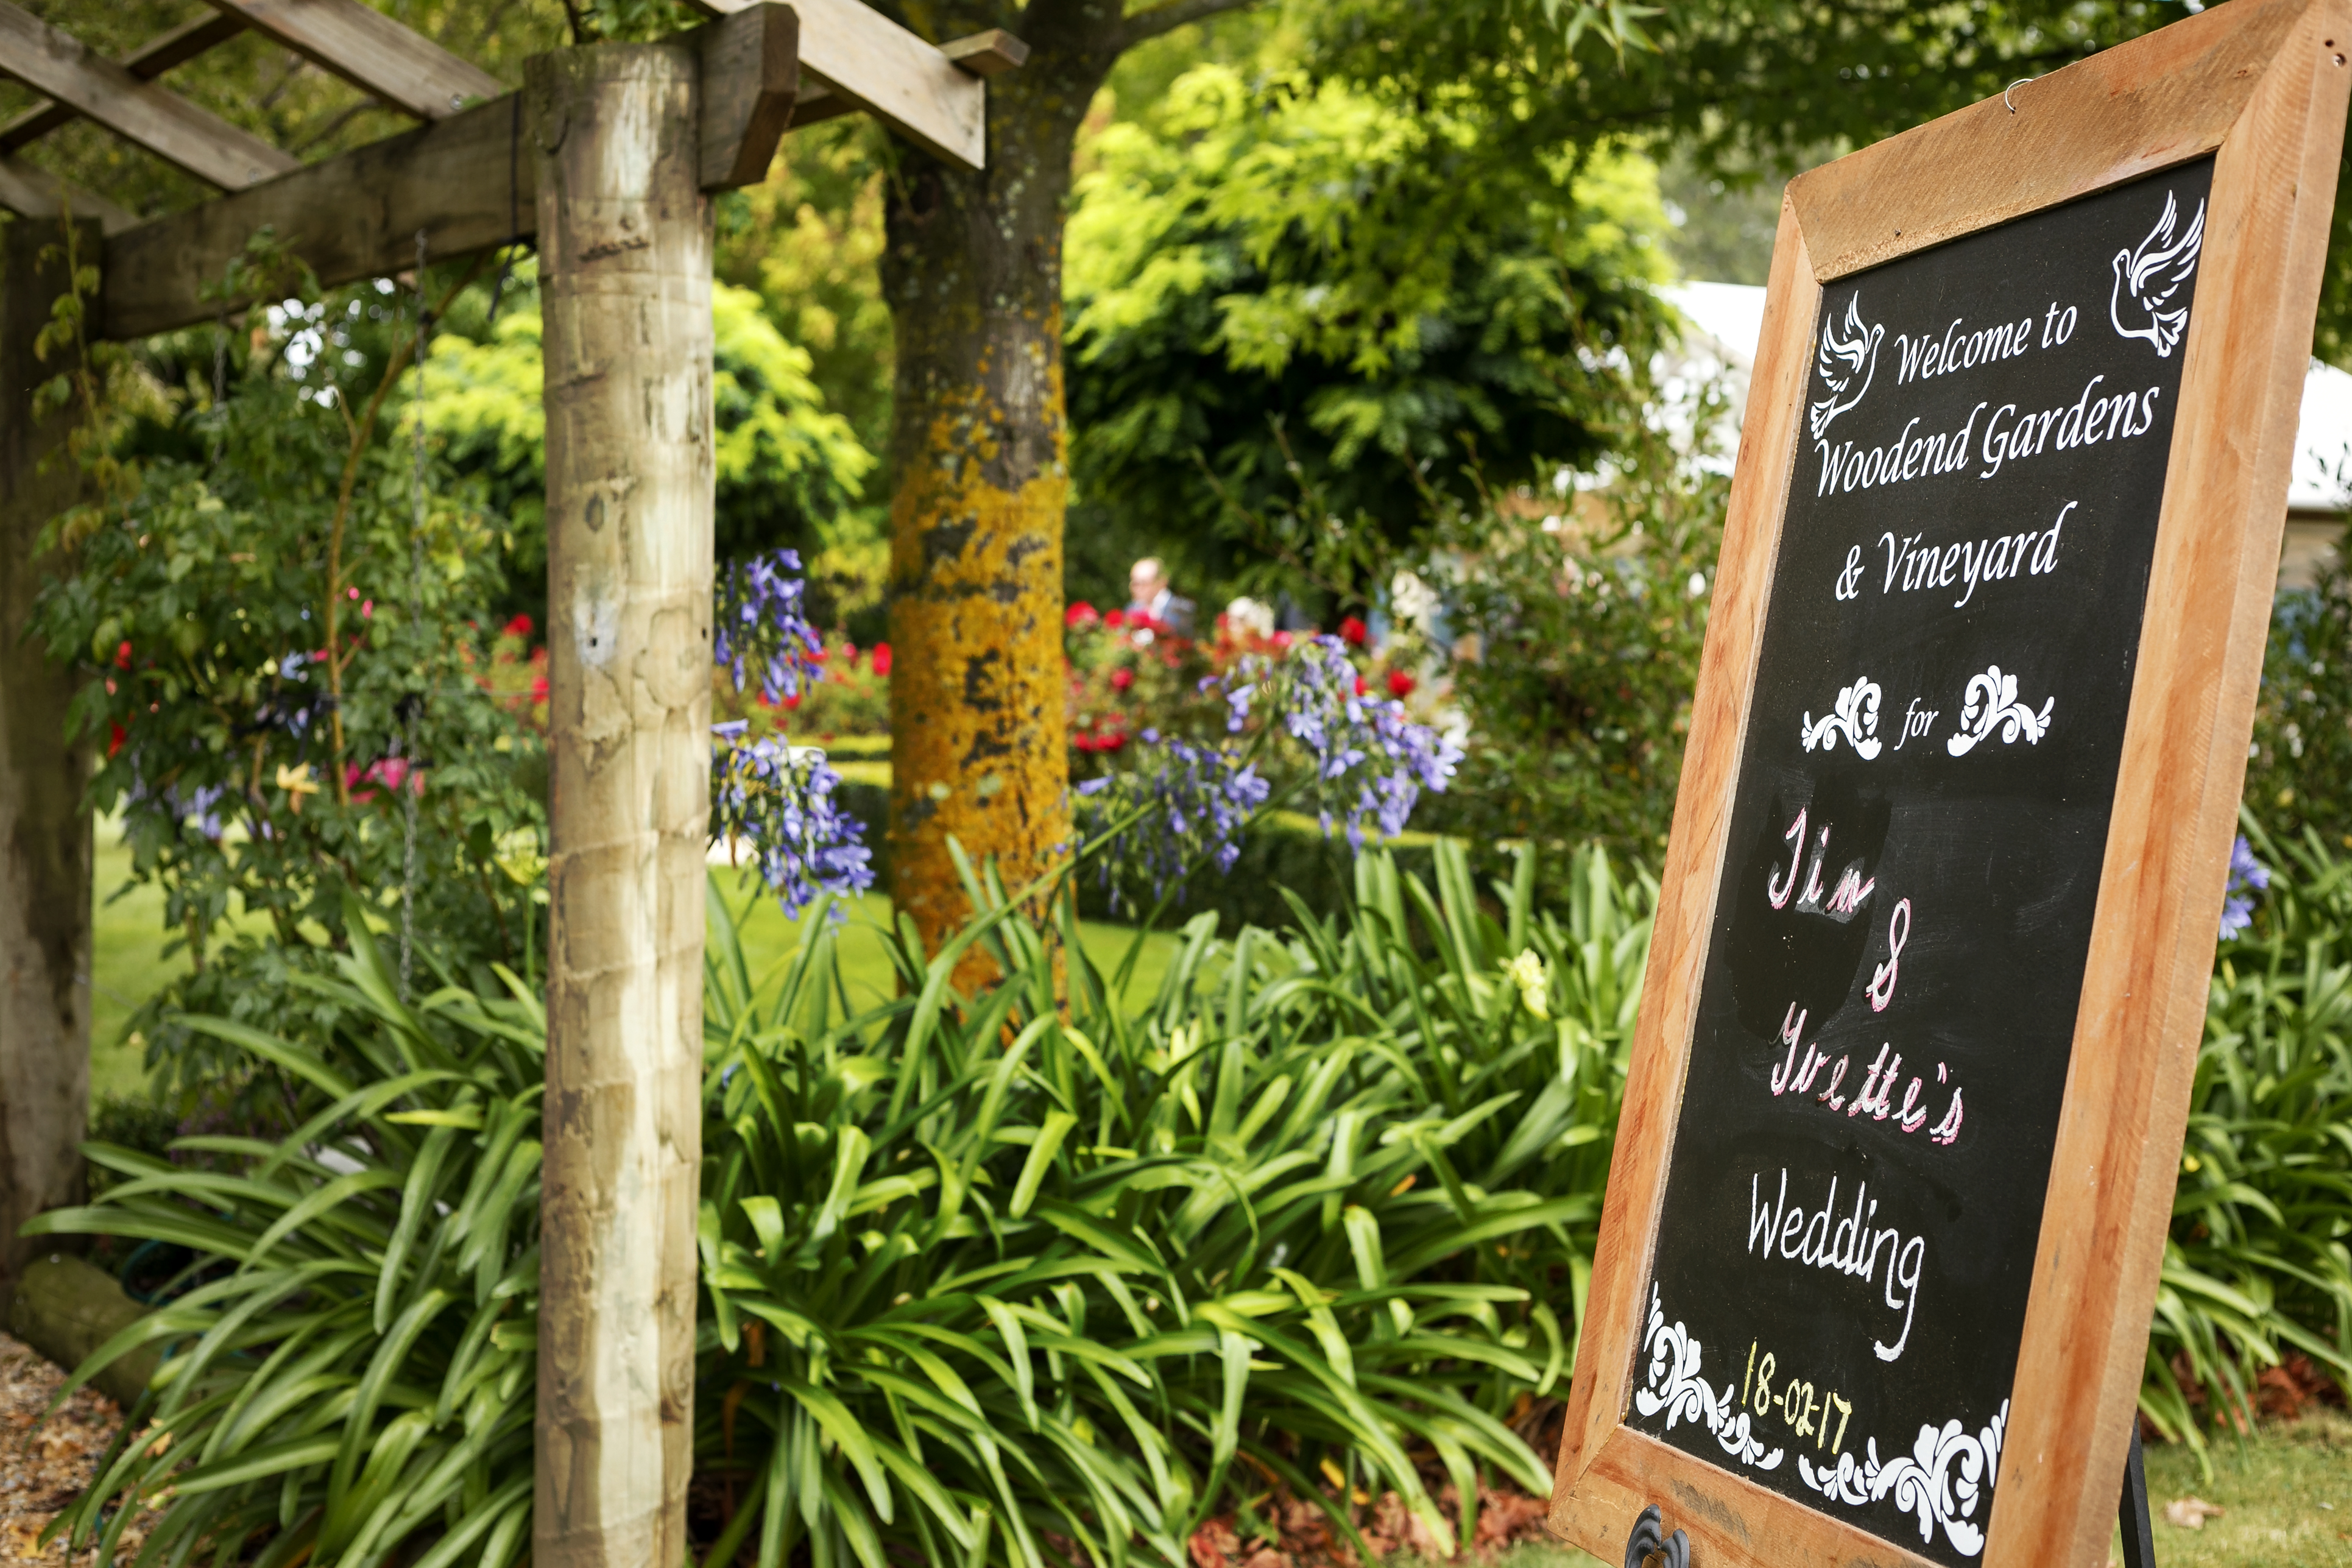 Welcome to
Woodend Gardens
& Vineyard
for
Jim
&
Yvette's
Wedding
18-02-17